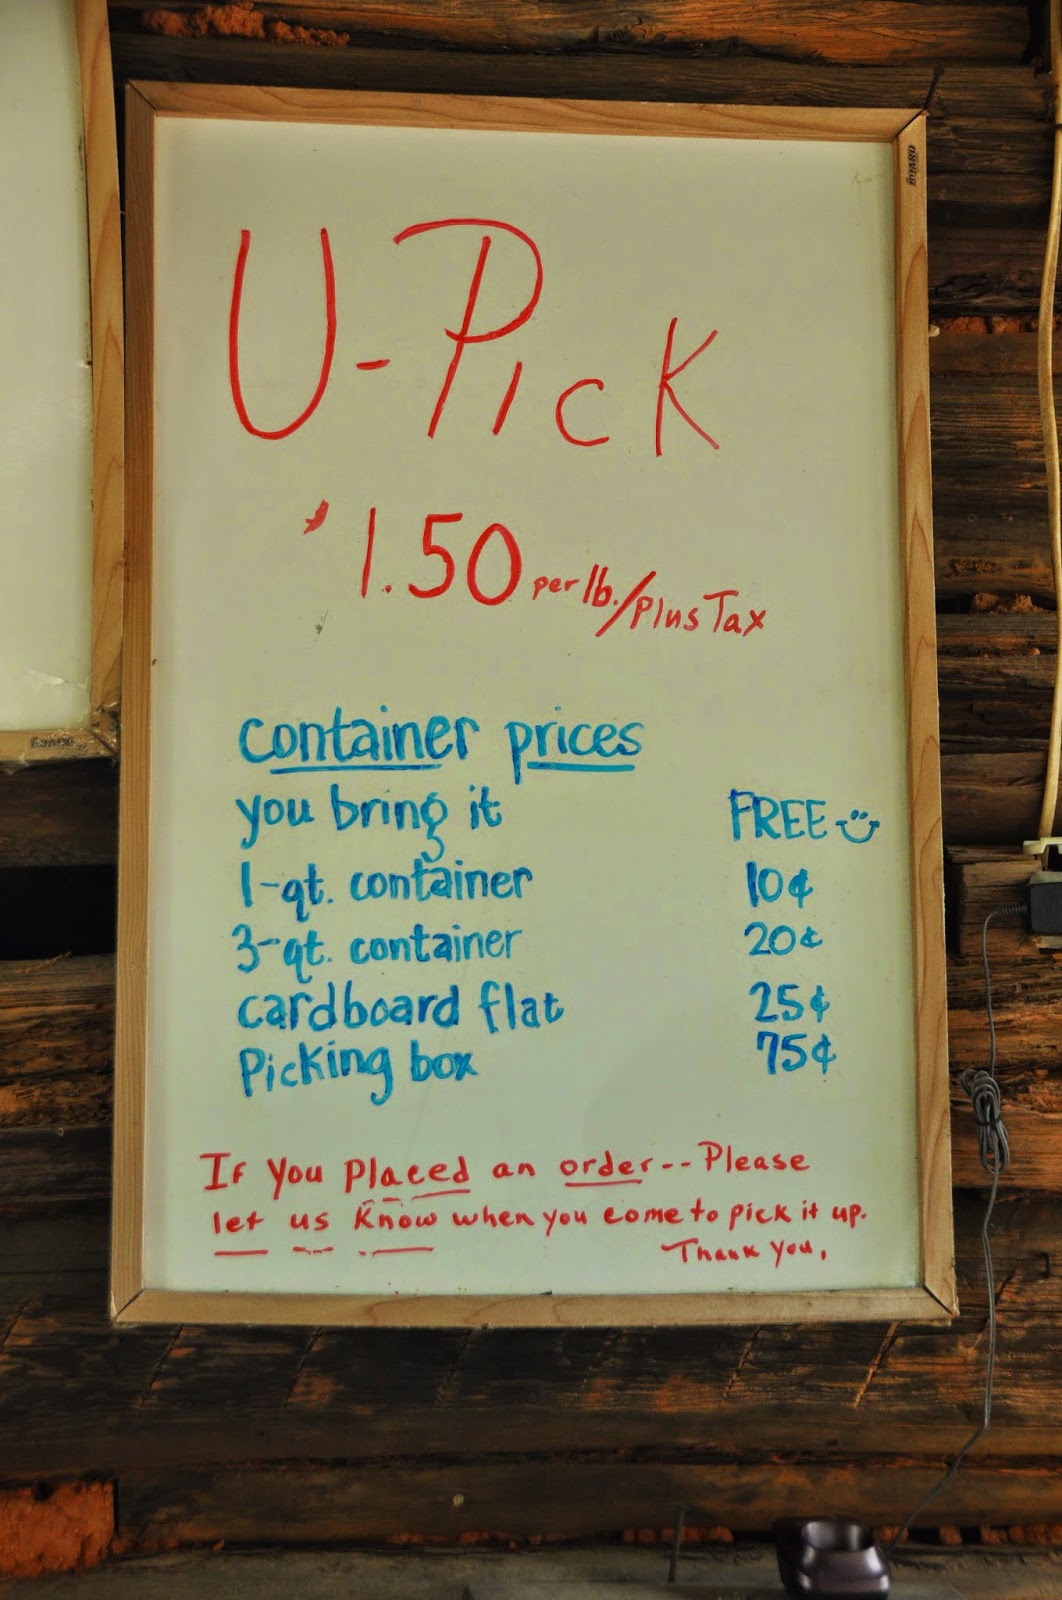 U-Pick
1.50 per lb./Plus Tax
container prices
you bring it FREE
1-qt. container 10¢
3-qt. container 20¢
cardboard flat 25¢
Picking box 75¢
If you placed an order--Please
let us know when you come to pick it up.
Thank you.